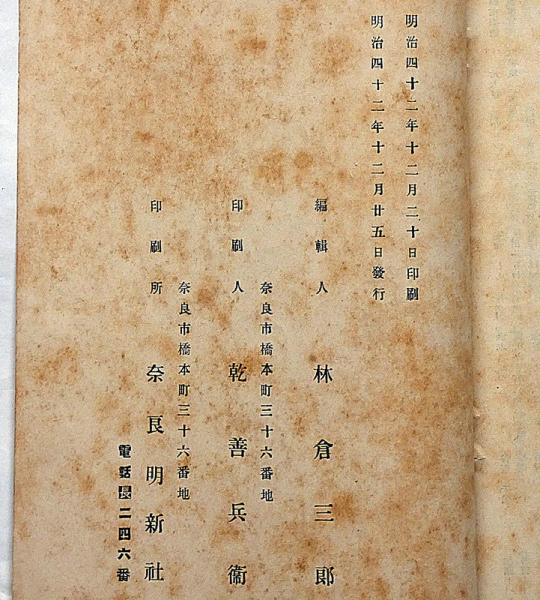 明治四十二年十二月二十日印刷
明治四十二年十二月廿五日發行
編輯人 林倉三郎
奈良市橋本町三十六番地
印刷人 乾善兵衞
奈良市橋本町三十六番地
印刷所 奈良明新社
電話長二四六番